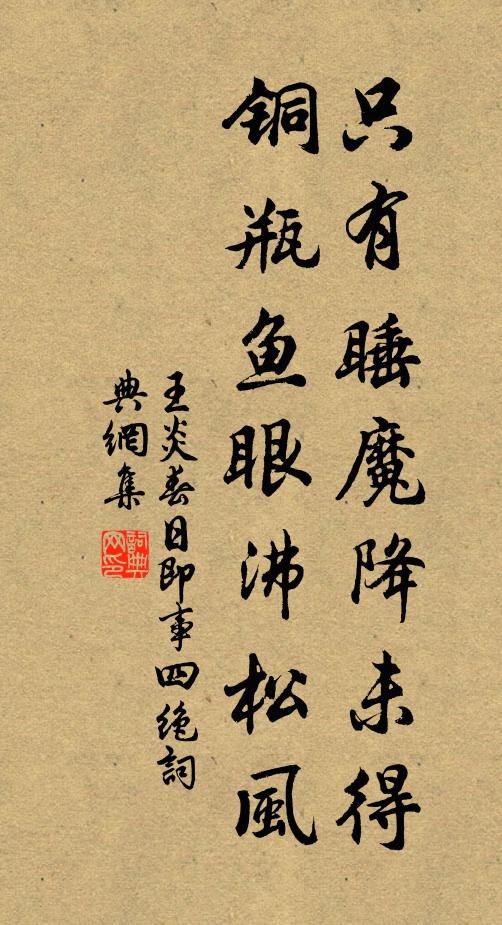 只有睡魔降未得
铜瓶鱼眼沸松風
王炎春日即事四绝詞
典網集
詞典
网印